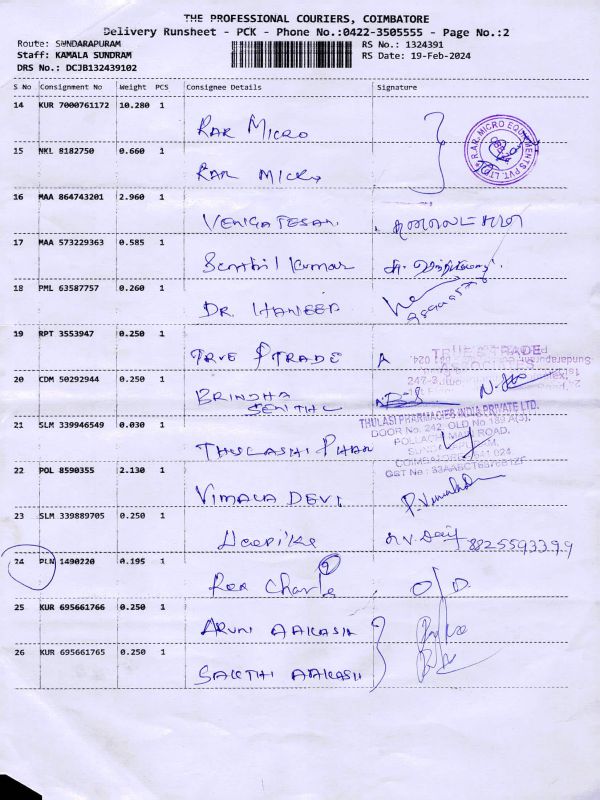 THE PROFESSIONAL COURIERS, COIMBATORE
Delivery Runsheet - PCK - Phone No.:0422-3505555 - Page No.:2
Route: SUNDARAPURAM
RS No.: 1324391
Staff: KAMALA SUNDRAM
RS Date: 19-Feb-2024
DRS No.: DCJB132439102
S No Consignment No Weight PCS Consignee Details Signature
14 KUR 7000761172 10.280 1
RAR MICRO
R.AR.MICRO EQUIPMENTS PVT. LTD
15 NKL 8182750 0.660 1
RAR MICRO
16 MAA 864743201 2.960 1
VENGATESAN
17 MAA 573229363 0.585 1
Senthil Kumar
18 PML 63587757 0.260 1
DR. HANEEF
19 RPT 3553947 0.250 1
TRUE TRADE
TRUE TRADE
20 CDM 50292944 0.250 1
BRINDHA
21 SLM 339946549 0.030 1
THULASHI PHAR
THULASI PHARMACIES INDIA PRIVATE LTD.
DOOR No. 242, OLD No 189 A(3),
POLLACHI MAIN ROAD,
COIMBATORE-641 024.
22 POL 8590355 2.130 1
VIMALA DEVI
23 SLM 339889705 0.250 1
Deepika
8825593399
24 PLN 1490220 0.195 1
Rex Charle
25 KUR 695661766 0.250 1
ARUN AAKASH
26 KUR 695661765 0.250 1
SAKTHI AAKASH